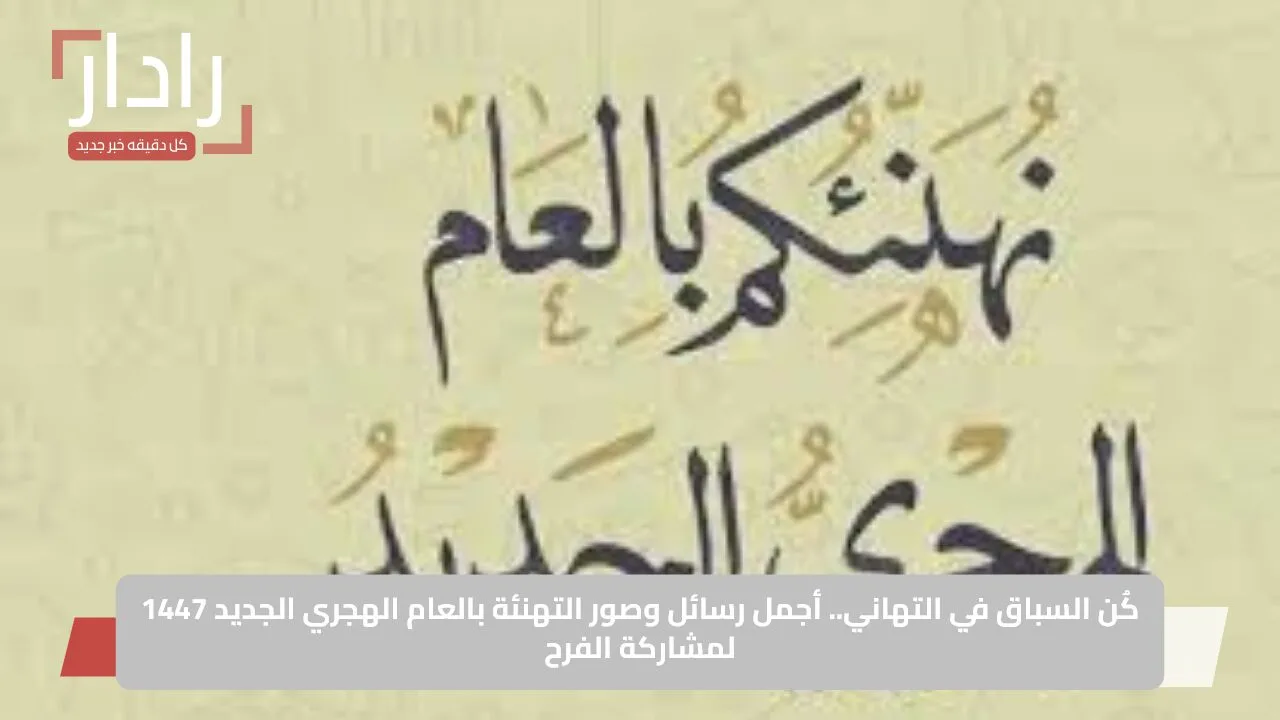 رادار
كل دقيقه خبر جديد
نُهَنِّئُكُمْ بِالْعَامِ
الهجريِّ الجديد
كُن السباق في التهاني.. أجمل رسائل وصور التهنئة بالعام الهجري الجديد 1447
لمشاركة الفرح